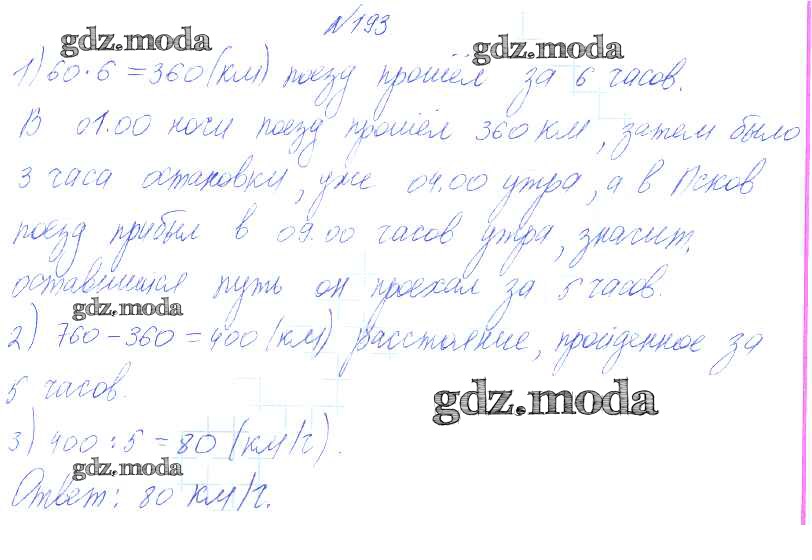 №193
gdz.moda gdz.moda
1) 60·6=360(км) поезд прошёл за 6 часов.
В 01.00 ночи поезд прошёл 360 км, затем было
3 часа остановки, уже 04.00 утра, а в Псков
поезд прибыл в 09.00 часов утра, значит,
оставшийся путь он проехал за 5 часов.
gdz.moda
2) 760-360=400 (км) расстояние, пройденное за
5 часов.
gdz.moda
3) 400:5=80 (км/г).
gdz.moda
Ответ: 80 км/г.